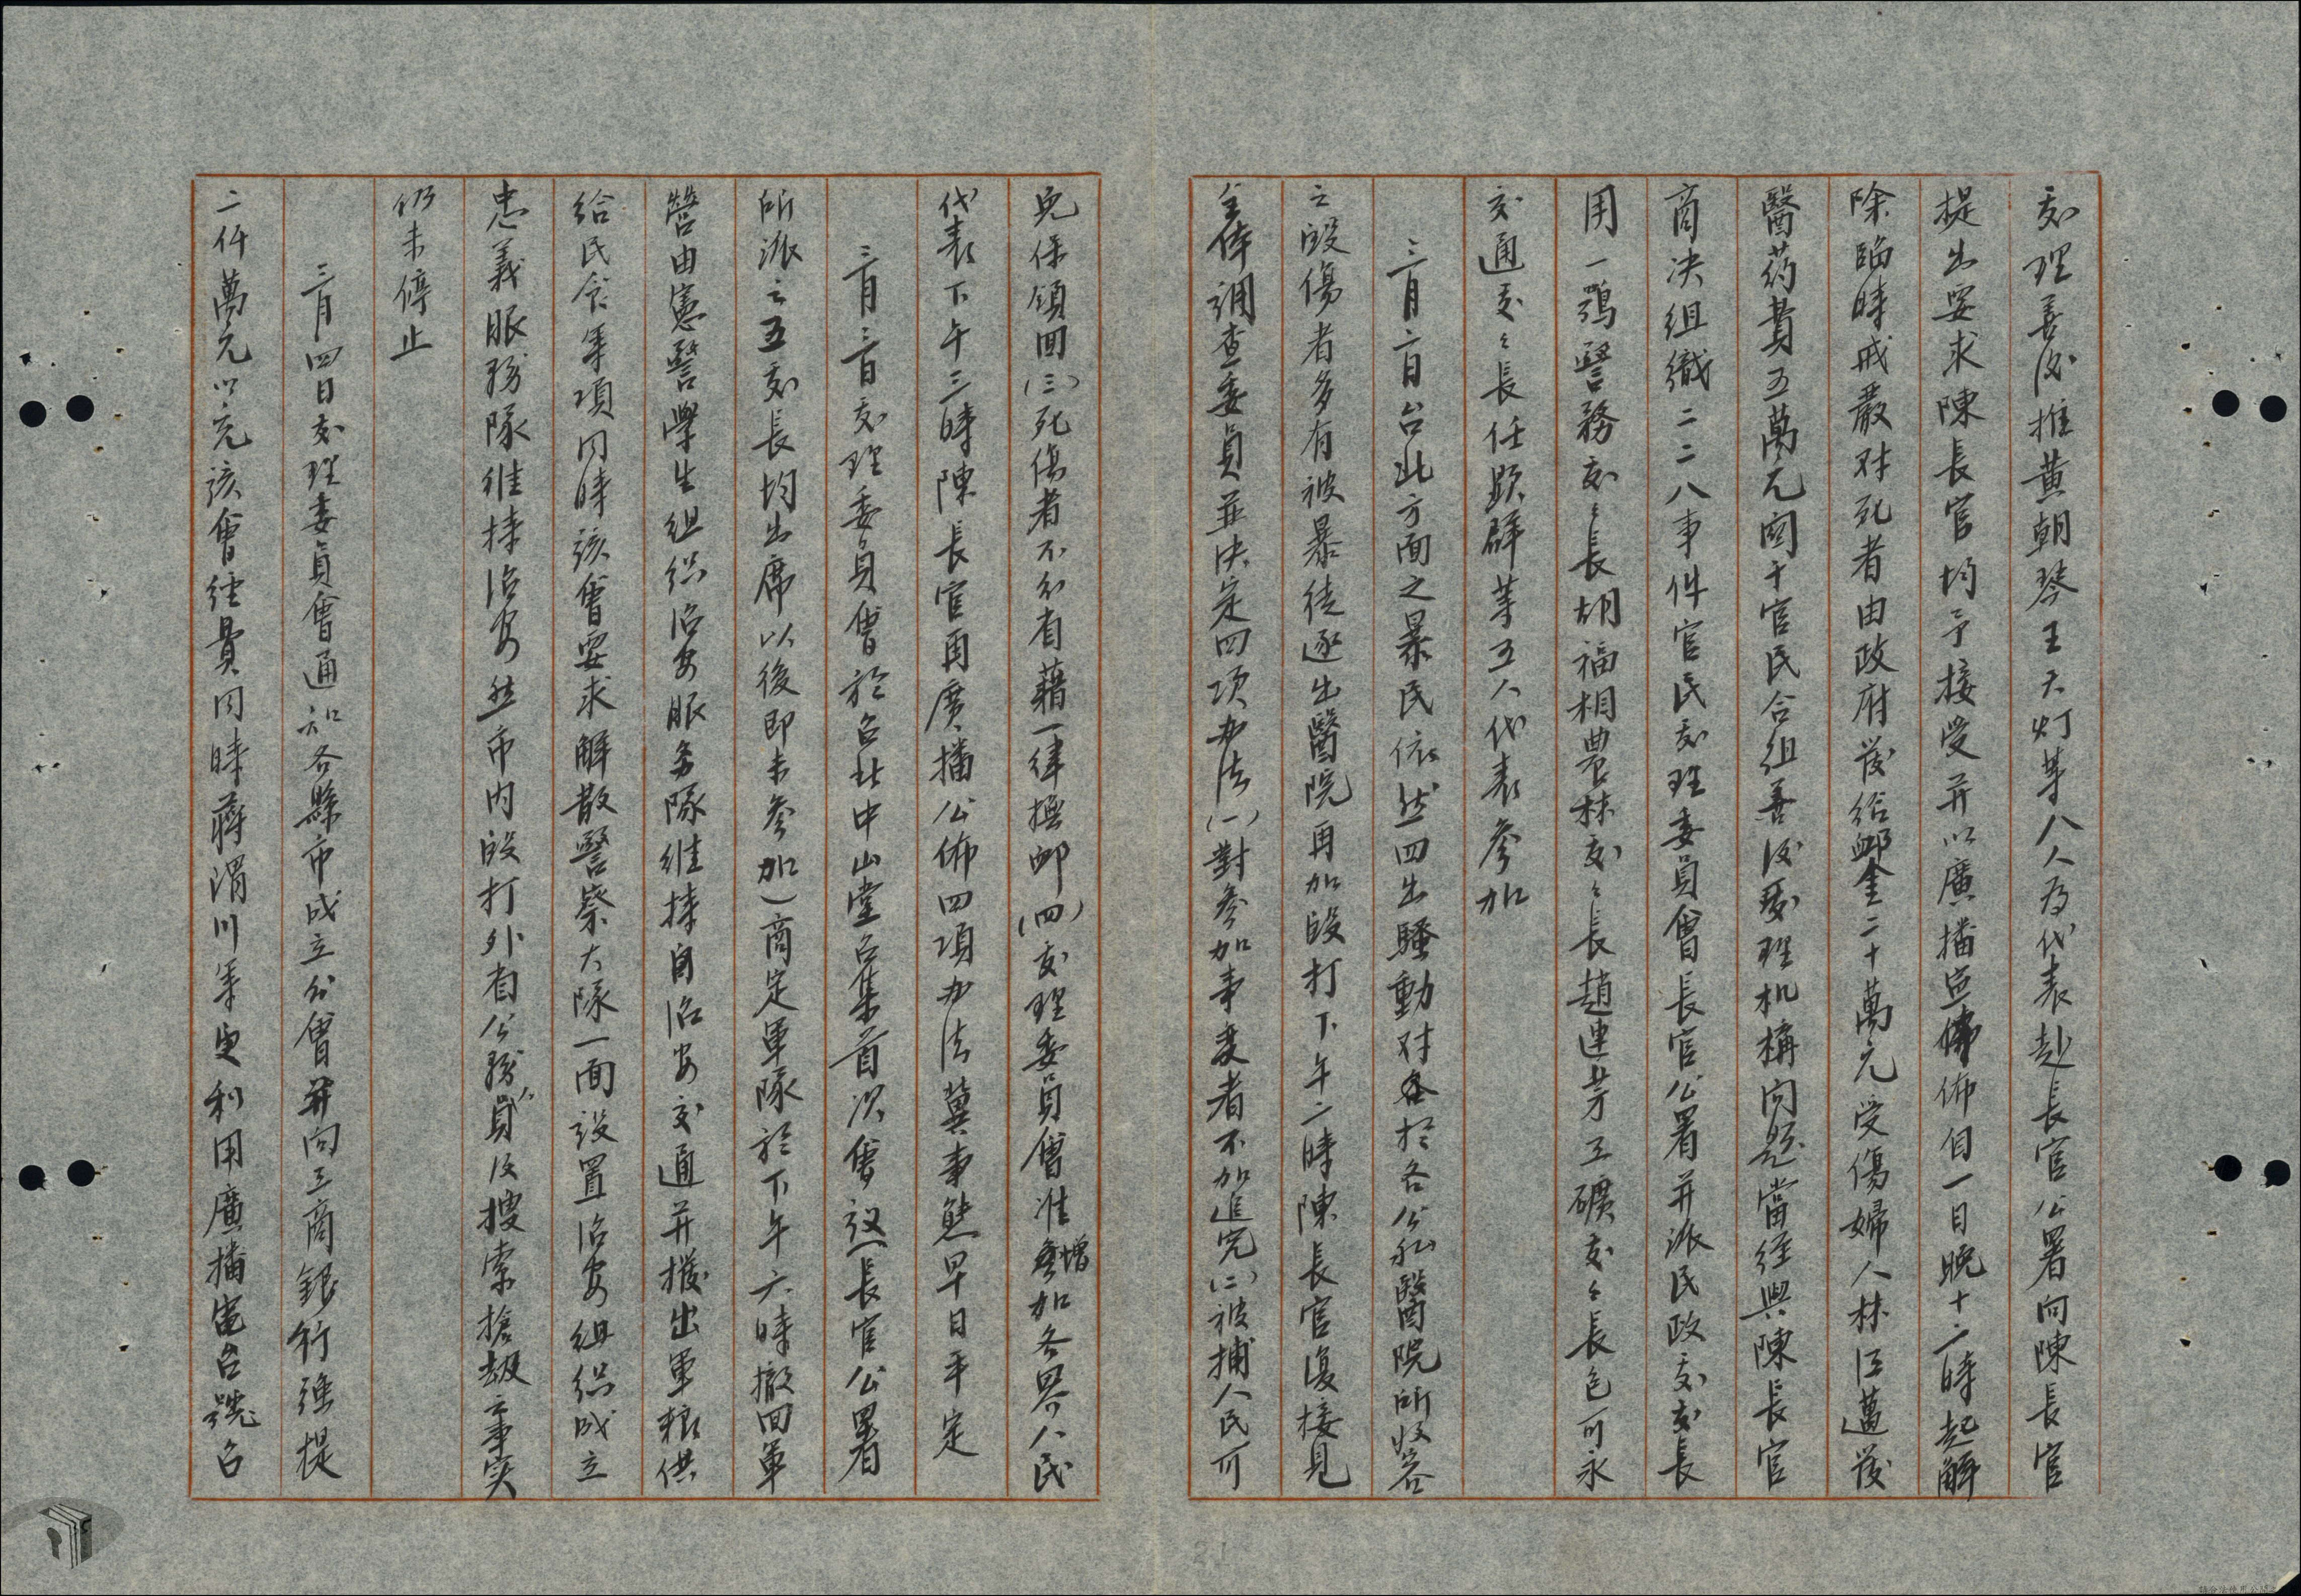 処理善後推黃朝琴王天灯等八人為代表赴長官公署向陳長官
提出要求陳長官均予接受并以廣播宣佈自一日晚十二時起解
除臨時戒嚴对死者由政府發給卹金二十萬元受傷婦人林江邁發
醫药費五萬元関于官民合組善後処理机構问题當经與陳長官
商决组織二二八事件官民処理委員會長官公署并派民政処処長
周一鶚警務処々長胡福相農林処々長趙連芳工礦処々長包可永
交通処々長任顕群等五人代表參加
三月二日台北方面之暴民依然四出騷動对於各公私醫院所收容
之毆傷者多有被暴徒逐出醫院再加毆打下午二時陳長官復接見
全体調查委員並决定四项办法(一)對參加事变者不加追究(二)被捕人民可
免保領回(三)死傷者不分省藉一律撫卹(四)処理委員會准增加各界人民
代表下午三時陳長官再廣播公佈四項办法冀事態早日平定
三月三日処理委員會於台北中山堂召集首次會议(長官公署
所派之五処長均出席以後即未參加)商定軍隊於下午六時撤回軍
營由憲警學生组织治安服务隊維持自治安交通并撥出軍粮供
給民食等項同時該會要求解散警察大隊一面設置治安组织成立
忠義服務隊維持治安然市内毆打外省公務員及搜索搶劫之事实
仍未停止
三月四日処理委員會通知各縣市成立分會并向工商銀行强提
二仟萬元以充該會经費同時蔣渭川等更利用廣播電台號召